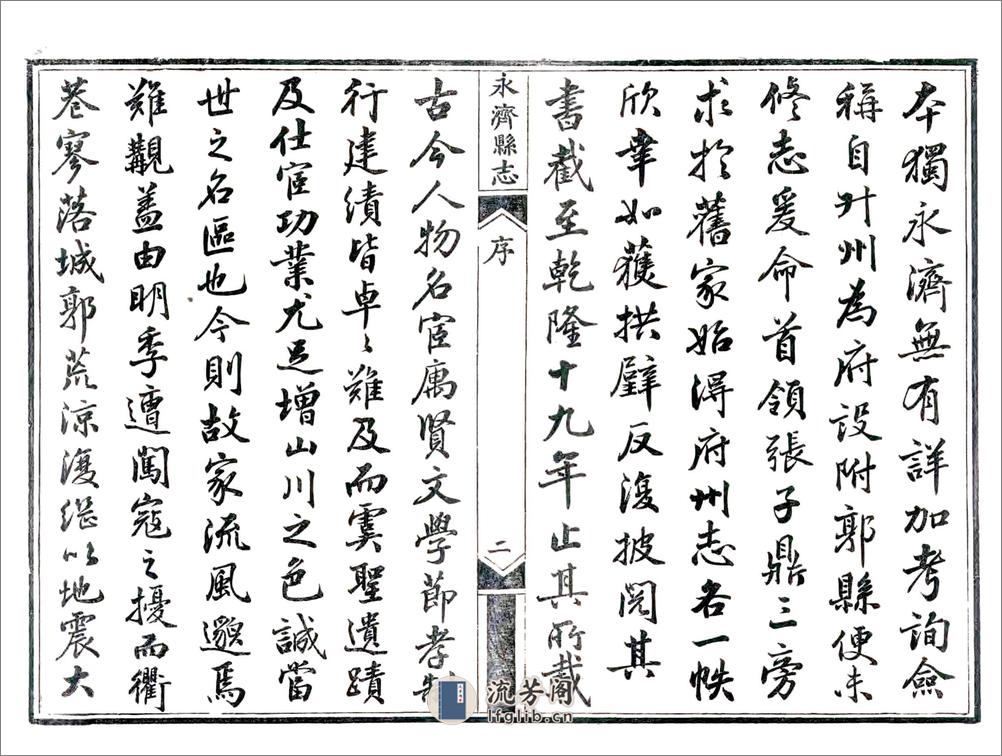 本獨永濟無有詳加考詢僉
稱自升州為府設附郭縣便未
修志爰命首領張子鼎三旁
求於舊家始得府州志各一帙
欣幸如獲拱璧反復披閱其
書截至乾隆十九年止其所載
永濟縣志
序
二
古今人物名宦鄉賢文學節孝
行建績皆卓〻難及而虞聖遺蹟
及仕宦功業尤足增山川之色誠當
世之名區也今則故家流風邈焉
難覯蓋由明季遭闖寇之擾而衢
巷寥落城郭荒涼復繼以地震大
流芳閣
lfglib.cn